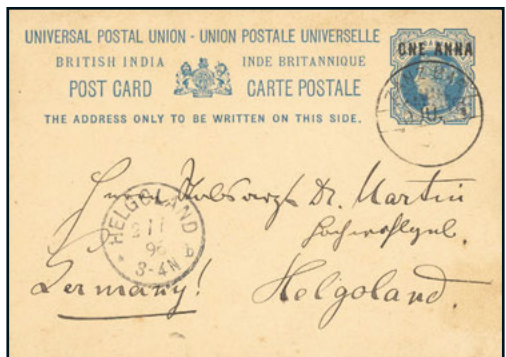 UNIVERSAL POSTAL UNION - UNION POSTALE UNIVERSELLE
BRITISH INDIA INDE BRITANNIQUE
POST CARD CARTE POSTALE
THE ADDRESS ONLY TO BE WRITTEN ON THIS SIDE.
ONE ANNA
ZANZIBAR
Dr. Martin
HELGOLAND
2 11
96
3-4N
Germany!
Helgoland.